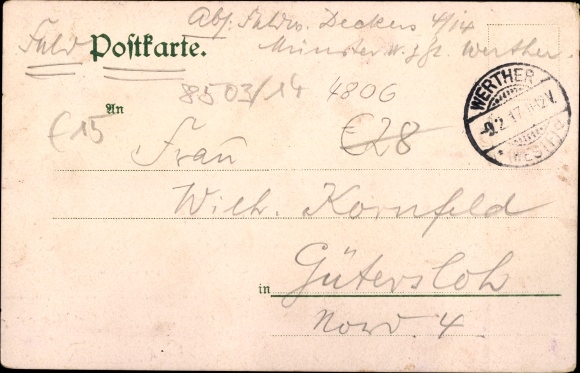 Abs. Feldw. Deckers 4/14
Feld Postkarte. Münster W. z. Zt. Werther.
8503/14 4806
An
€15 €28
Frau
Wilh. Kornfeld
in Gütersloh
Nord. 4.
WERTHER
-9.2.17.
* WESTF.